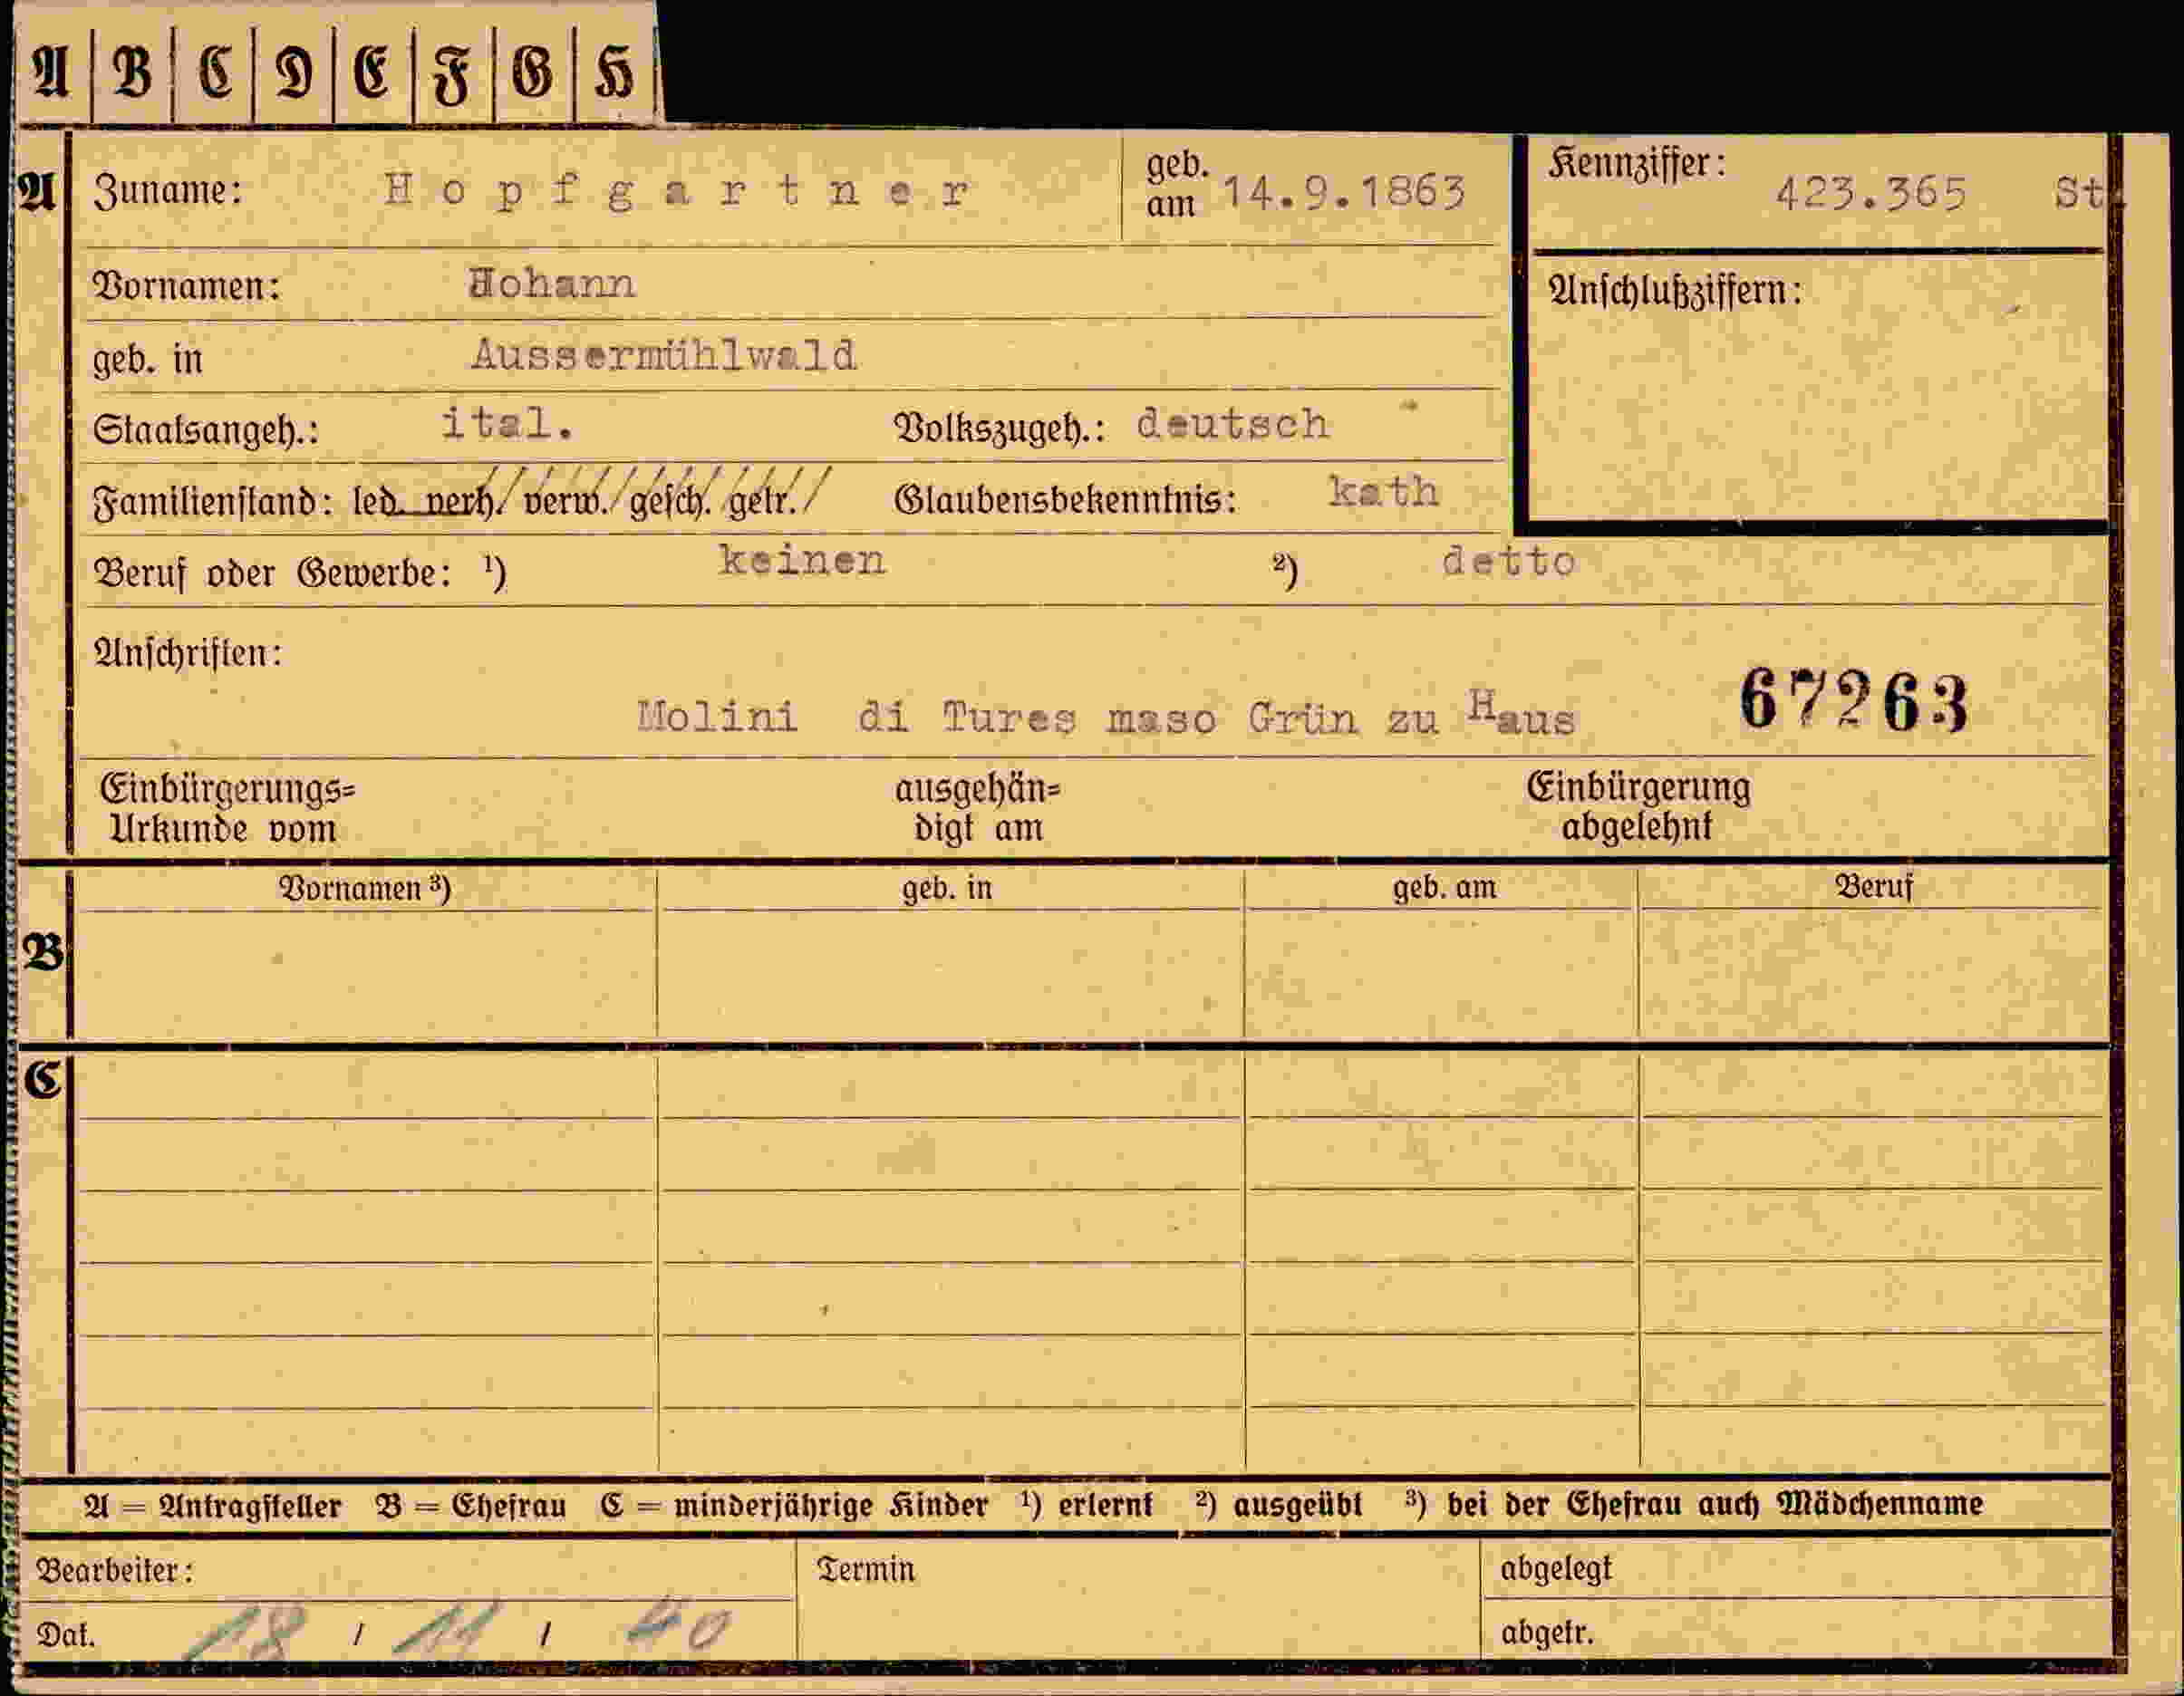 A B C D E F G H
A Zuname: Hopfgartner geb. am 14.9.1863 Kennziffer: 423.365 St.
Vornamen: Johann Anschlußziffern:
geb. in Aussermühlwald
Staatsangeh.: ital. Volkszugeh.: deutsch
Familienstand: led. verh. verw. gesch. getr. Glaubensbekenntnis: kath
Beruf oder Gewerbe: ¹) keinen ²) detto
Anschriften:
Molini di Tures maso Grün zu Haus 67263
Einbürgerungs= Urkunde vom ausgehän= digt am Einbürgerung abgelehnt
Vornamen ³) geb. in geb. am Beruf
B
C
A = Antragsteller B = Ehefrau C = minderjährige Kinder ¹) erlernt ²) ausgeübt ³) bei der Ehefrau auch Mädchenname
Bearbeiter: Termin abgelegt
Dat. 18 / 11 / 40 abgetr.